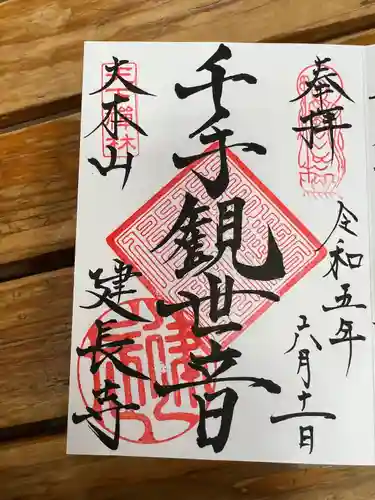 奉拝
令和五年
六月十一日
千手観世音
大本山
天下禅林
建長寺